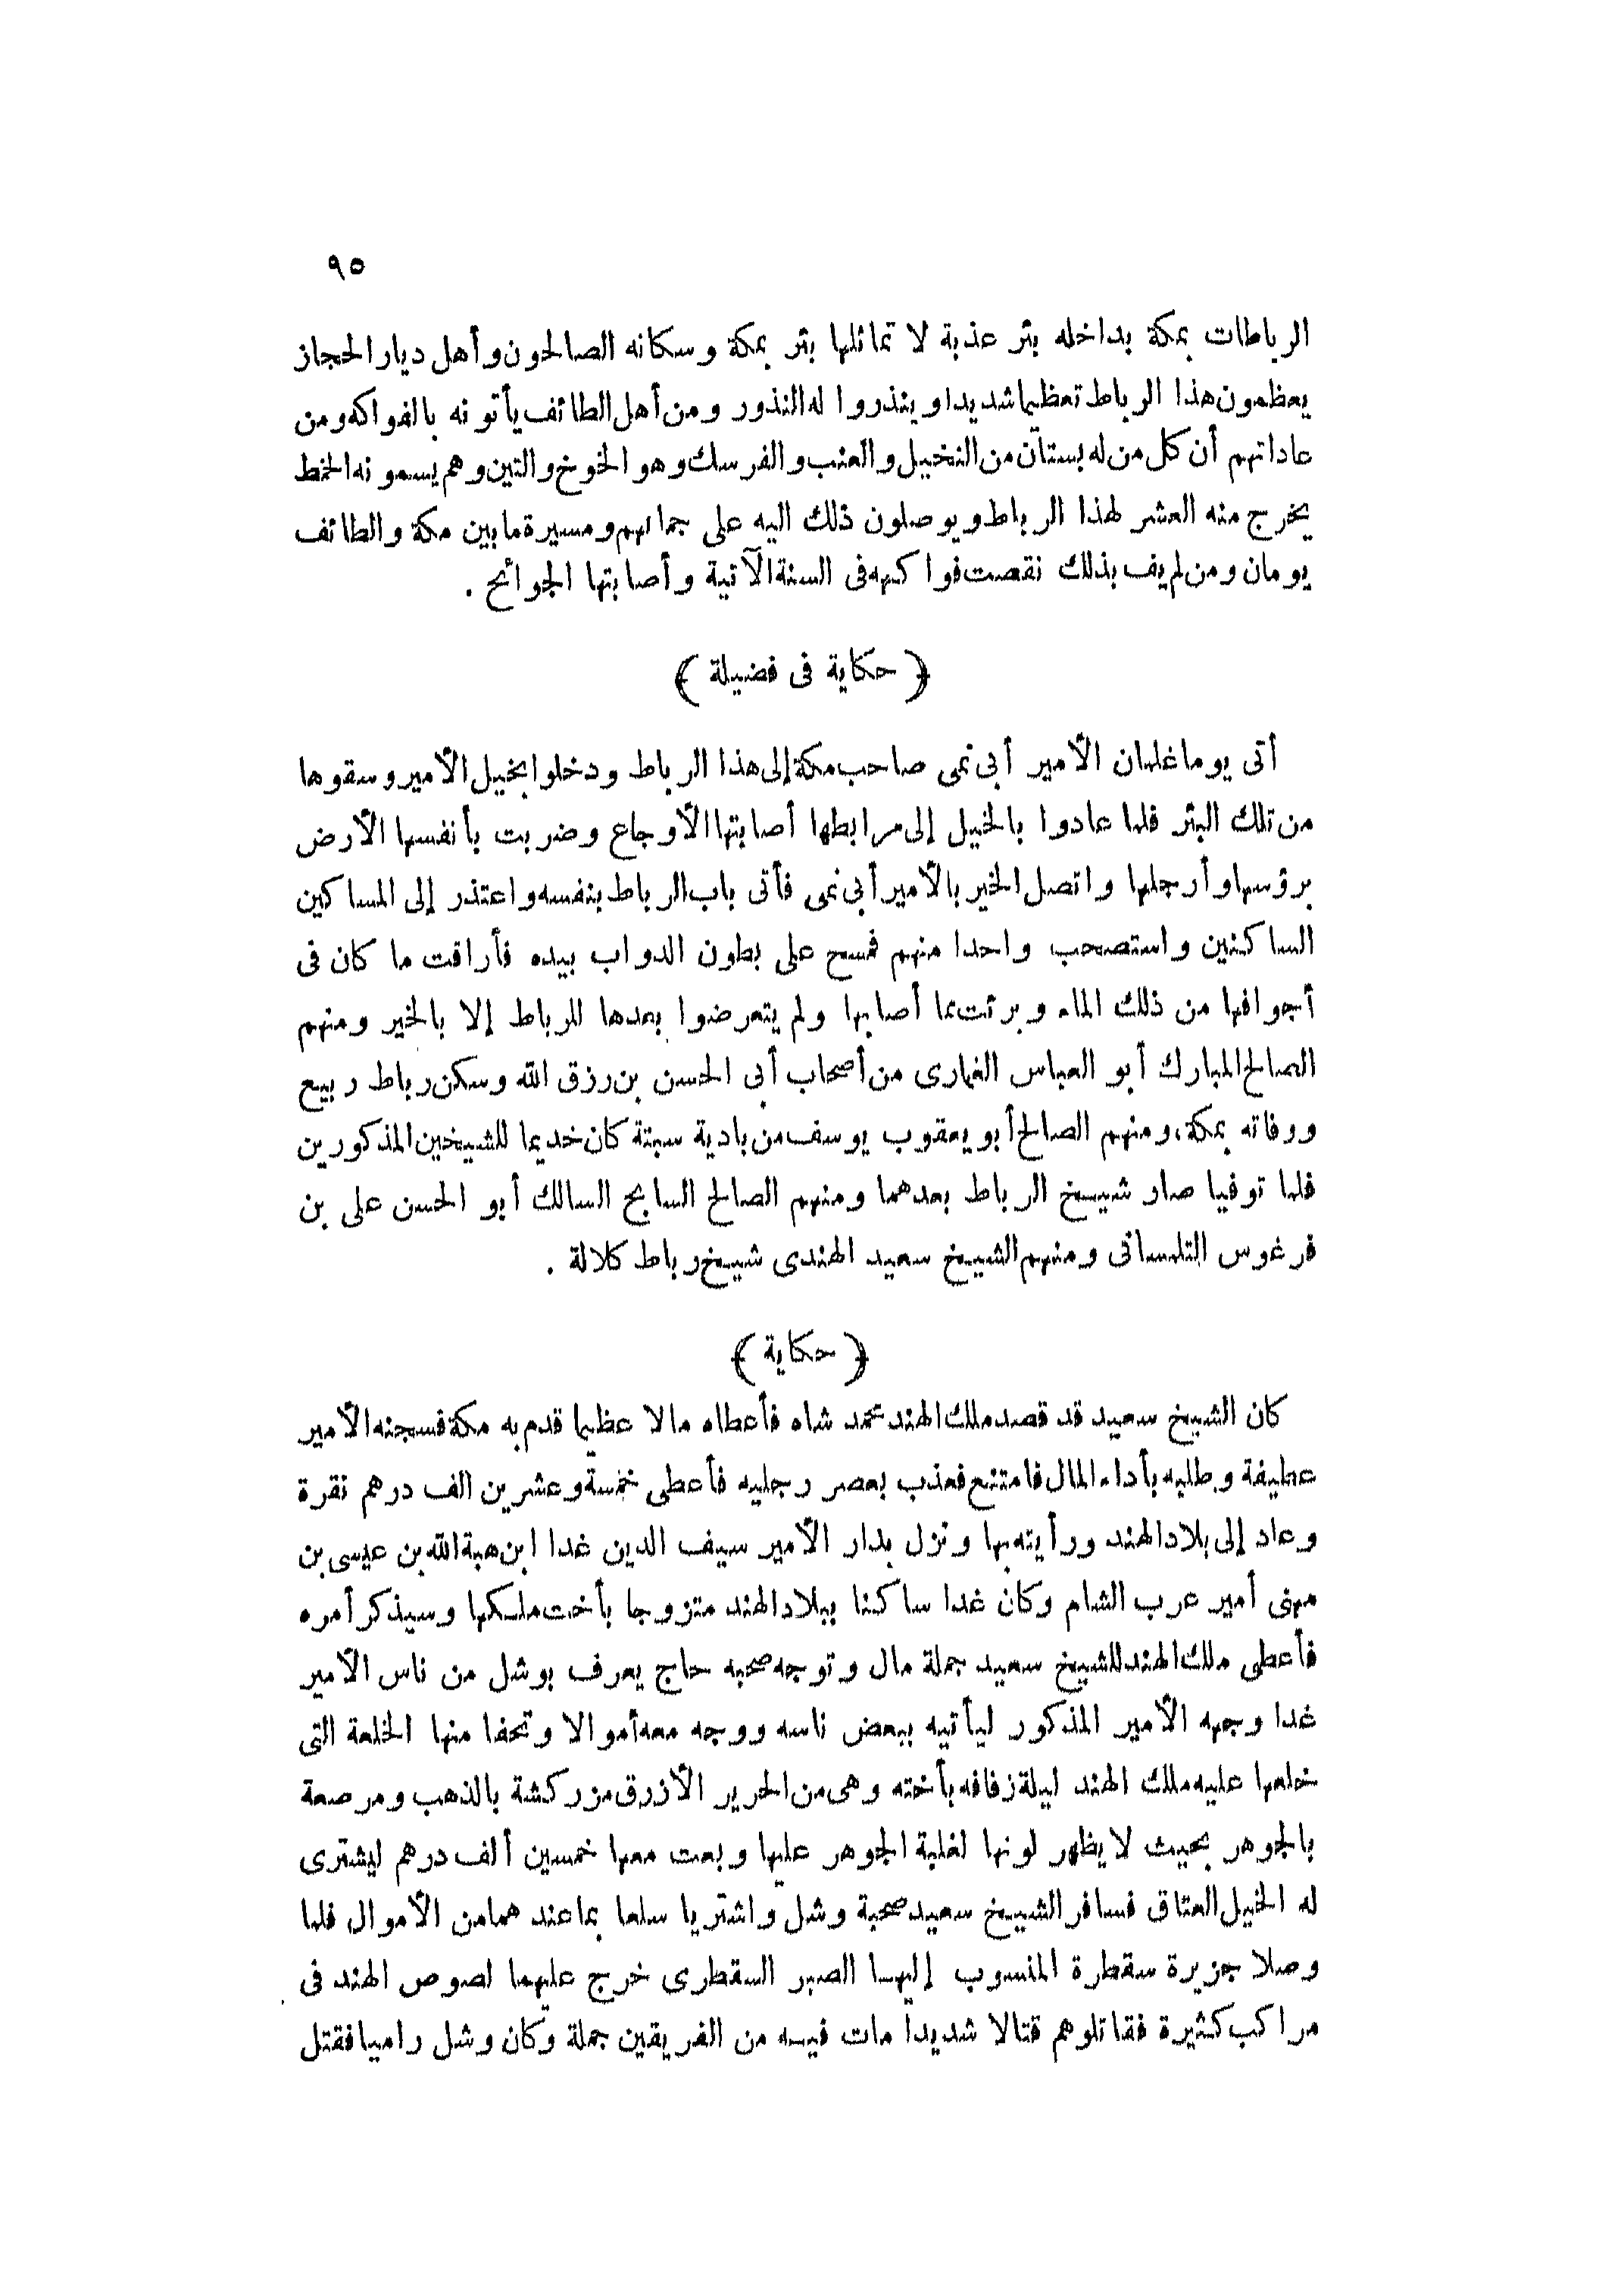 ٩٥
الرباطات بمكة بداخله بئر عذبة لا تماثلها بئر بمكة وسكانه الصالحون وأهل ديار الحجاز
يعظمون هذا الرباط تعظيما شديدا وينذروا له النذور ومن أهل الطائف يأتونه بالفواكه ومن
عاداتهم أن كل من له بستان من النخيل والعنب والفرسك وهو الخوخ والتين وهم يسمونه الخمط
يخرج منه العشر لهذا الرباط ويوصلون ذلك اليه على جمالهم ومسيرة ما بين مكة والطائف
يومان ومن لم يف بذلك نقصت فواكهه فى السنة الآتية وأصابتها الجوائح .
﴿ حكاية فى فضيلة ﴾
أتى يوما غلمان الأمير أبى نمى صاحب مكة إلى هذا الرباط ودخلوا بخيل الأمير وسقوها
من تلك البئر فلما عادوا بالخيل إلى مرابطها أصابتها الأوجاع وضربت بأنفسها الأرض
برؤسها وأرجلها واتصل الخبر بالأمير أبى نمى فأتى باب الرباط بنفسه واعتذر إلى المساكين
الساكنين واستصحب واحدا منهم فمسح على بطون الدواب بيده فأراقت ما كان فى
أجوافها من ذلك الماء وبرئت مما أصابها ولم يتعرضوا بعدها للرباط إلا بالخير ومنهم
الصالح المبارك أبو العباس الغمارى من أصحاب أبى الحسن بن رزق الله وسكن رباط ربيع
ووفاته بمكة، ومنهم الصالح أبو يعقوب يوسف من بادية سبتة كان خديما للشيخين المذكورين
فلما توفيا صار شيخ الرباط بعدهما ومنهم الصالح السابح السالك أبو الحسن على بن
فرغوس التلمسانى ومنهم الشيخ سعيد الهندى شيخ رباط كلالة .
﴿ حكاية ﴾
كان الشيخ سعيد قد قصد ملك الهند محمد شاه فأعطاه مالا عظيما قدم به مكة فسجنه الأمير
عطيفة وطلبه بأداء المال فامتنع فعذب بعصر رجليه فأعطى خمسة وعشرين الف درهم نقرة
وعاد إلى بلاد الهند ورأيته بها ونزل بدار الأمير سيف الدين غدا ابن هبة الله بن عيسى بن
مهنى أمير عرب الشام وكان غدا ساكنا ببلاد الهند متزوجا بأخت ملكها وسيذكر أمره
فأعطى ملك الهند للشيخ سعيد جملة مال وتوجه صحبه حاج يعرف بوشل من ناس الأمير
غدا وجهه الأمير المذكور ليأتيه ببعض ناسه ووجه معه أموالا وتحفا منها الخلعة التى
خلعها عليه ملك الهند ليلة زفافه بأخته وهى من الحرير الأزرق مزركشة بالذهب ومرصعة
بالجوهر بحيث لا يظهر لونها لغلبة الجوهر عليها وبعث معها خمسين ألف درهم ليشترى
له الخيل العتاق فسافر الشيخ سعيد صحبة وشل واشتريا سلعا بما عندهما من الأموال فلما
وصلا جزيرة سقطرة المنسوب إليها الصبر السقطرى خرج عليهما لصوص الهند فى
مراكب كثيرة فقاتلوهم قتالا شديدا مات فيه من الفريقين جملة وكان وشل راميا فقتل